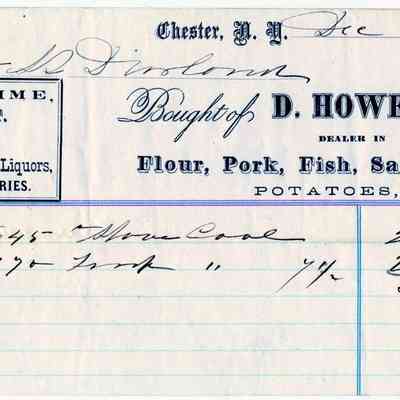 Chester, N. Y. Dec
IME,
Bought of D. HOWE
DEALER IN
Liquors,
RIES.
Flour, Pork, Fish, Sa
POTATOES,
45 Stove Coal
70 " 7 1/2